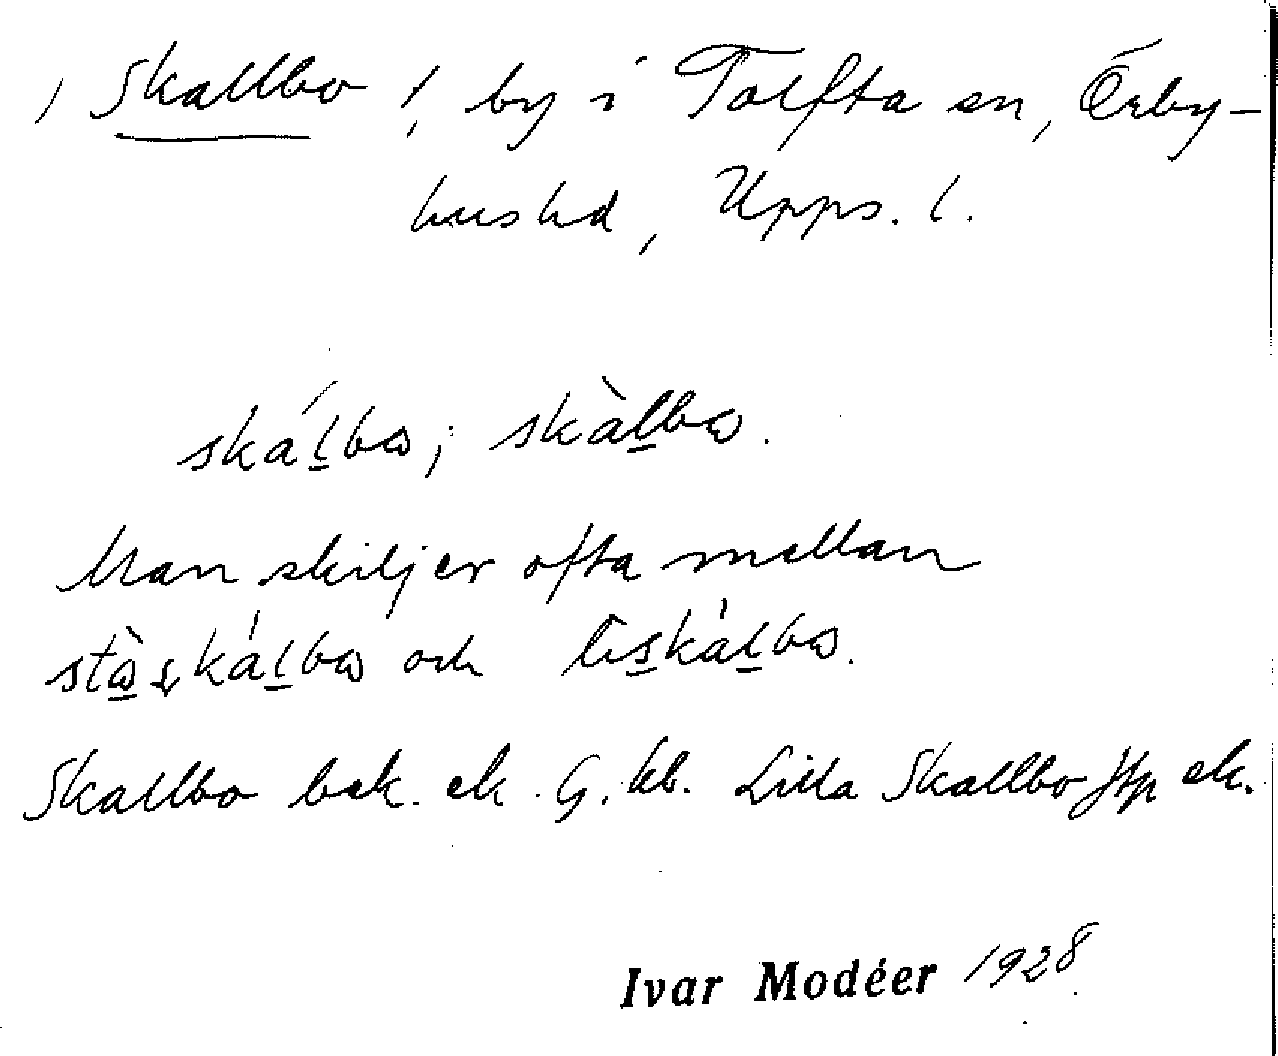 , Skallbo !, by i Tolfta sn, Örby-
hus hd, Upps. l.
skálbɷ; skàlbɷ.
Man skiljer ofta mellan
stɷ̀skálbɷ och liskálbɷ.
Skallbo bek. ek. G. kb. Lilla Skallbo ek.
Ivar Modéer 1928